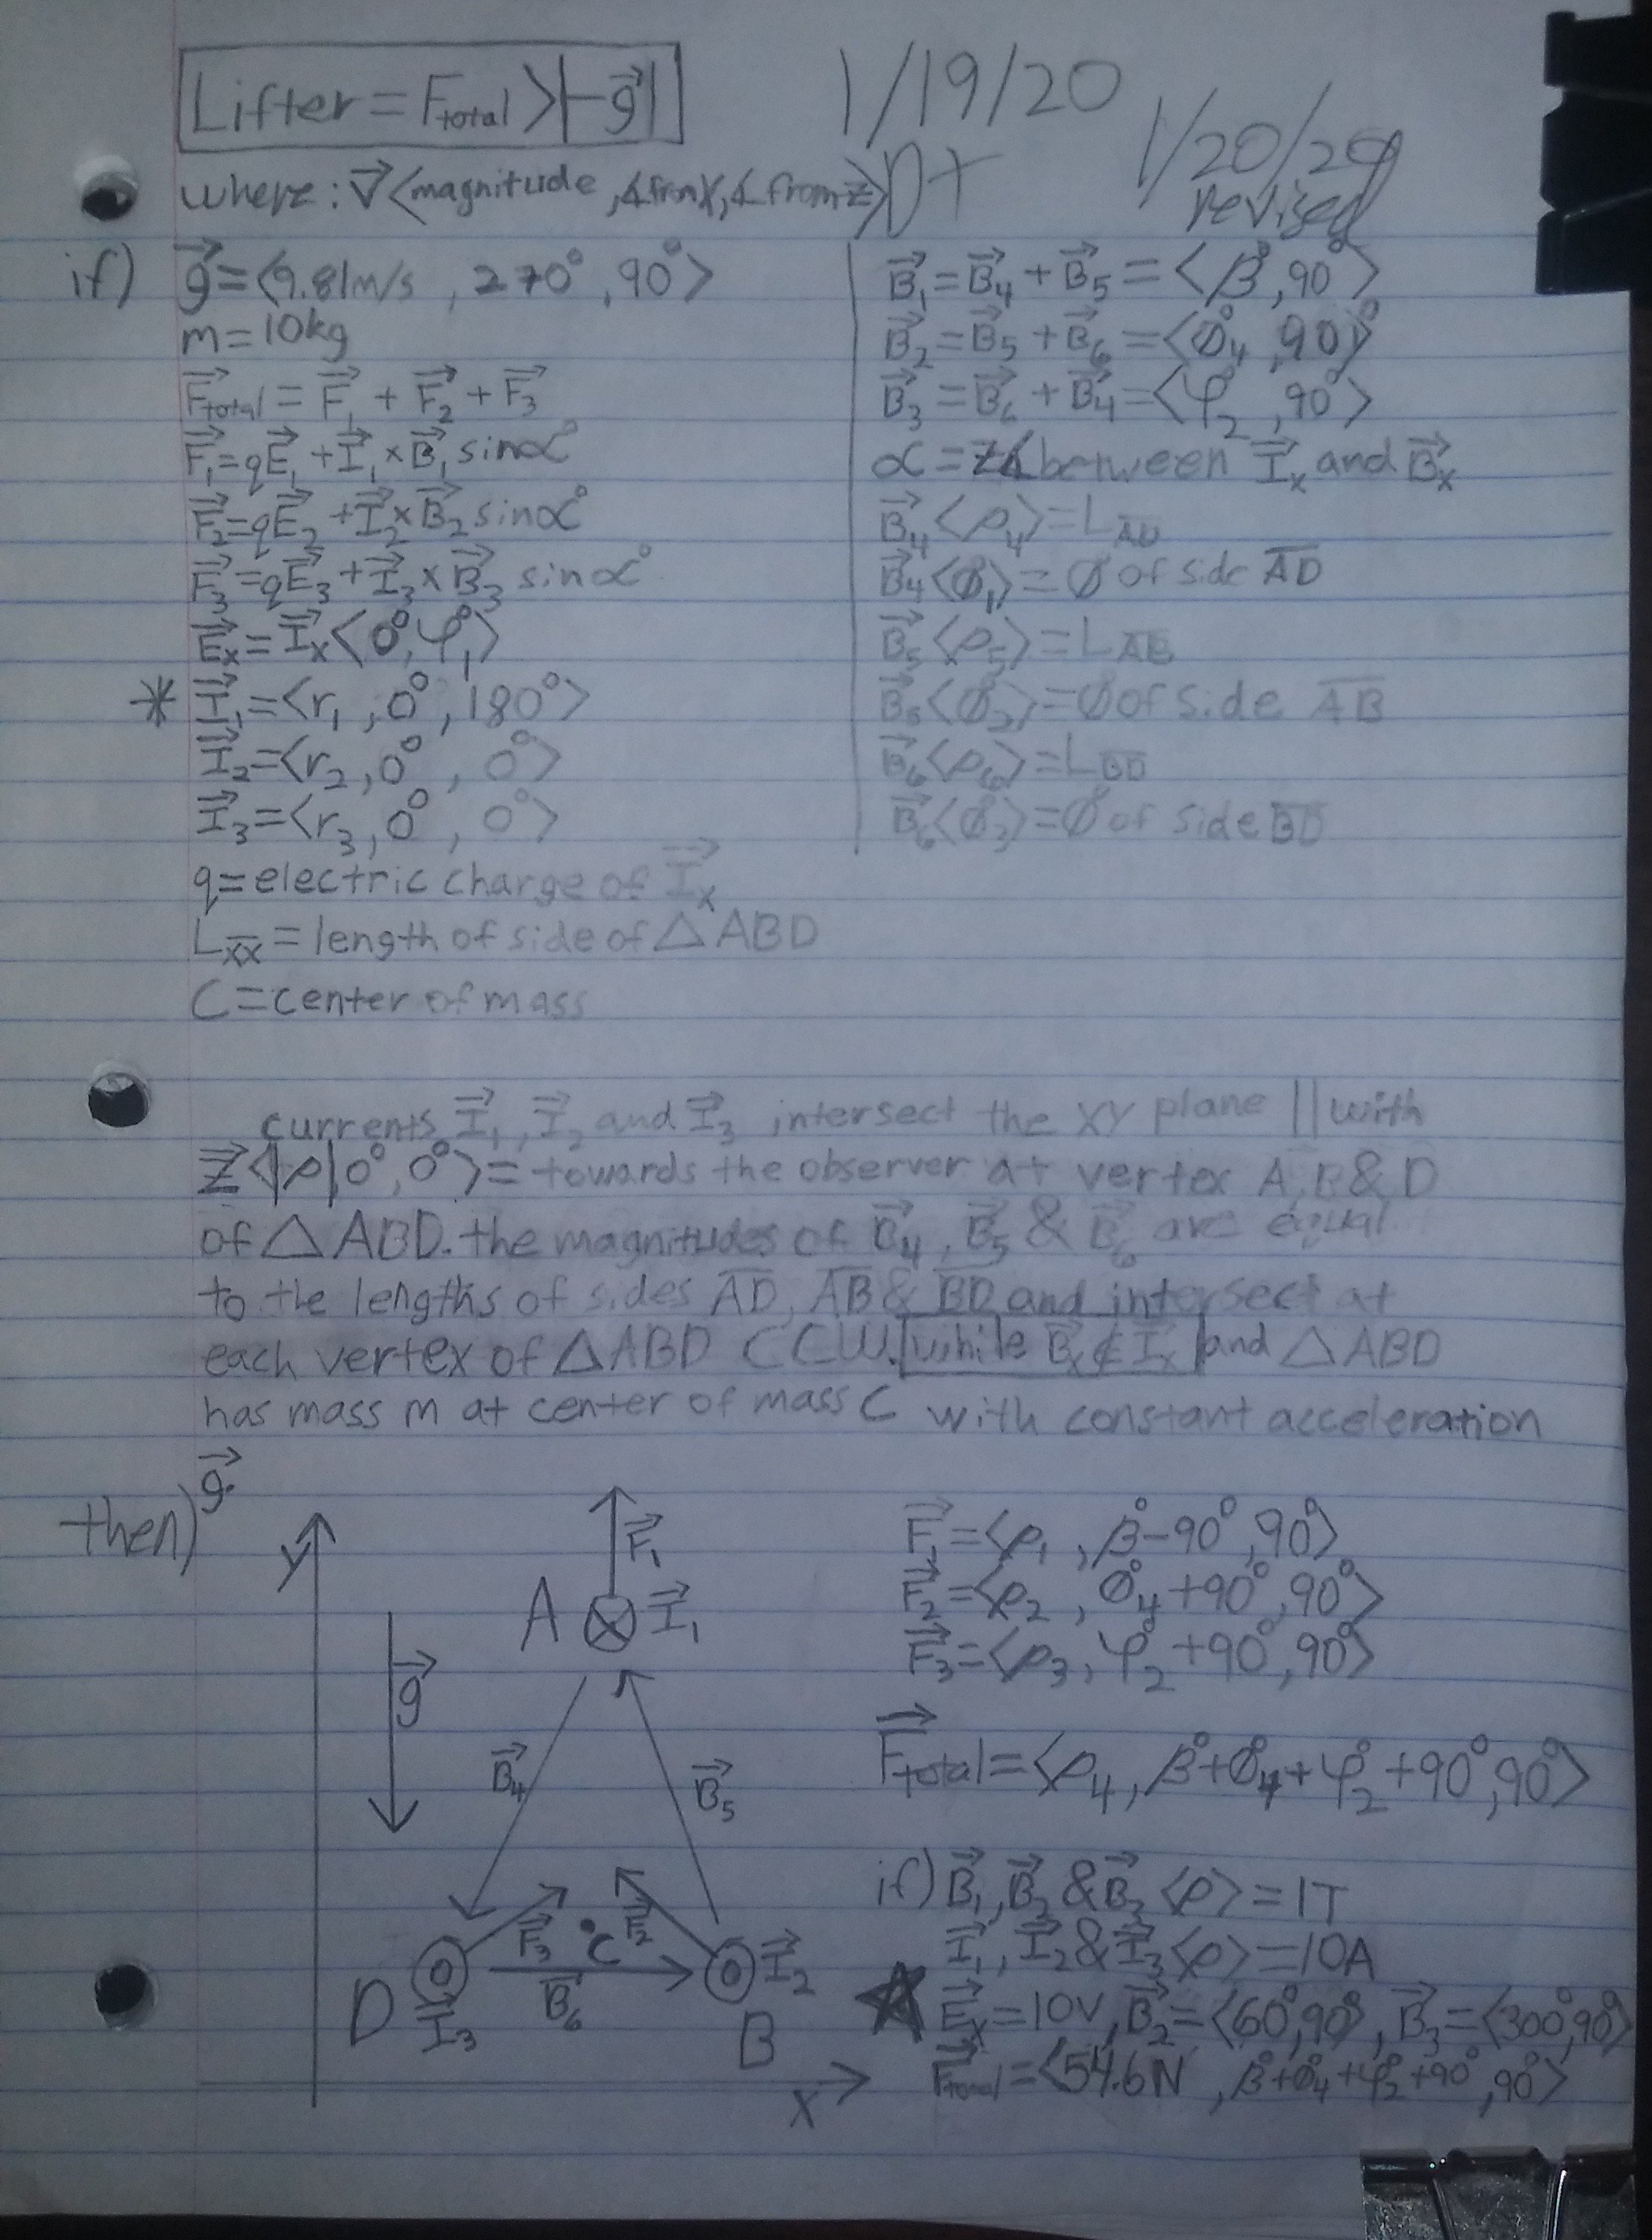 Lifter = F⃗total > |-g⃗|
1/19/20
1/20/20
revised
where: V⃗<magnitude, ∡frmX, ∡ from z>
if) g⃗ = <9.81m/s , 270° , 90°>
m = 10kg
F⃗total = F⃗₁ + F⃗₂ + F⃗₃
F⃗₁ = qE⃗₁ + I⃗₁ × B⃗₁ sin∝°
F⃗₂ = qE⃗₂ + I⃗₂ × B⃗₂ sin∝°
F⃗₃ = qE⃗₃ + I⃗₃ × B⃗₃ sin∝°
E⃗x = I⃗x <0°, φ₁°>
* I⃗₁ = <r₁ , 0° , 180°>
I⃗₂ = <r₂ , 0° , 0°>
I⃗₃ = <r₃ , 0° , 0°>
q = electric charge of I⃗x
L_XX = length of side of △ABD
C = center of mass
B⃗₁ = B⃗₄ + B⃗₅ = <β°, 90°>
B⃗₂ = B⃗₅ + B⃗₆ = <Ø₄°, 90°>
B⃗₃ = B⃗₆ + B⃗₄ = <φ₂°, 90°>
∝ = ∡ between I⃗x and B⃗x
B⃗₄<ρ₄> = L_AD
B⃗₄<Ø₁°> = Ø of side AD
B⃗₅<ρ₅> = L_AB
B⃗₅<Ø₂°> = Ø of side AB
B⃗₆<ρ₆> = L_BD
B⃗₆<Ø₃°> = Ø of side BD
currents I⃗₁, I⃗₂ and I⃗₃ intersect the XY plane || with
Z⃗<|ρ|, 0°, 0°> = towards the observer at vertex A, B & D
of △ABD. the magnitudes of B⃗₄, B⃗₅ & B⃗₆ are equal
to the lengths of sides AD, AB & BD and intersect at
each vertex of △ABD CCW. while B⃗x ∉ I⃗x and △ABD
has mass m at center of mass C with constant acceleration
g⃗.
then)
y
g⃗
F⃗₁
A I⃗₁
B⃗₄
B⃗₅
F⃗₃ C F⃗₂
D I⃗₃
B⃗₆
I⃗₂
B
X
F⃗₁ = <ρ₁ , β°-90°, 90°>
F⃗₂ = <ρ₂ , Ø₄°+90°, 90°>
F⃗₃ = <ρ₃ , φ₂°+90°, 90°>
F⃗total = <ρ₄, β°+Ø₄°+φ₂°+90°, 90°>
if) B⃗₁, B⃗₂ & B⃗₃ <ρ> = 1T
I⃗₁, I⃗₂ & I⃗₃ <ρ> = 10A
E⃗x = 10V, B⃗₂ = <60°, 90°>, B⃗₃ = <300°, 90°>
F⃗total = <54.6N , β°+Ø₄°+φ₂°+90°, 90°>